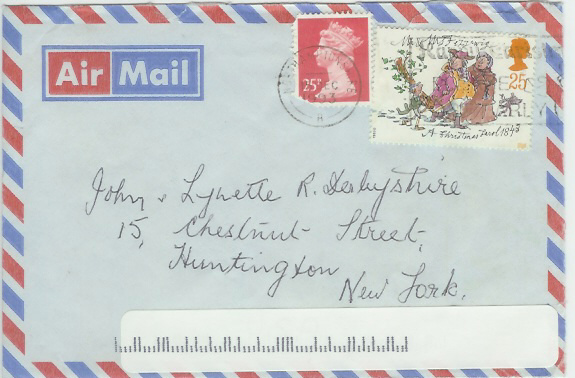 Air Mail
25P
Mr Fezziwig
25
A Christmas Carol 1843
John & Lynette R. Derbyshire
15, Chestnut Street,
Huntington
New York.